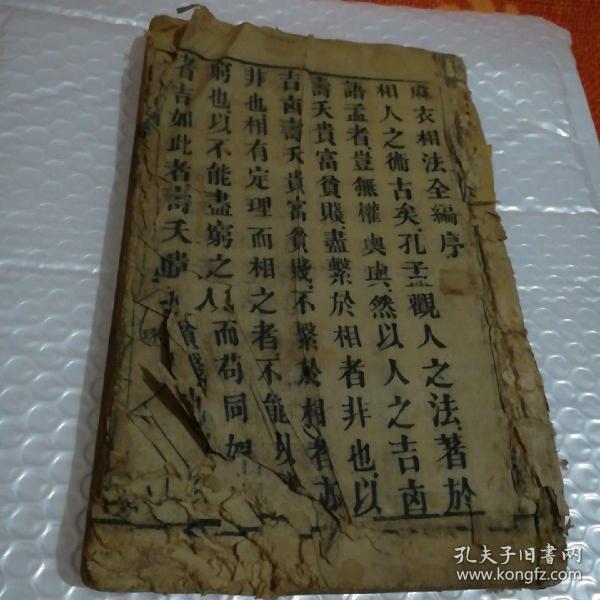 麻衣相法全編序
相人之術古矣孔孟觀人之法著於
語孟者豈無權輿與然以人之吉凶
壽夭貴富貧賤盡繫於相者非也以
吉凶壽夭貴富貧賤不繫於相者亦
非也相有定理而相之者不能以
窮也以不能盡窮之人而苟同如
者吉如此者壽夭
貧賤
孔夫子旧书网
www.kongfz.com